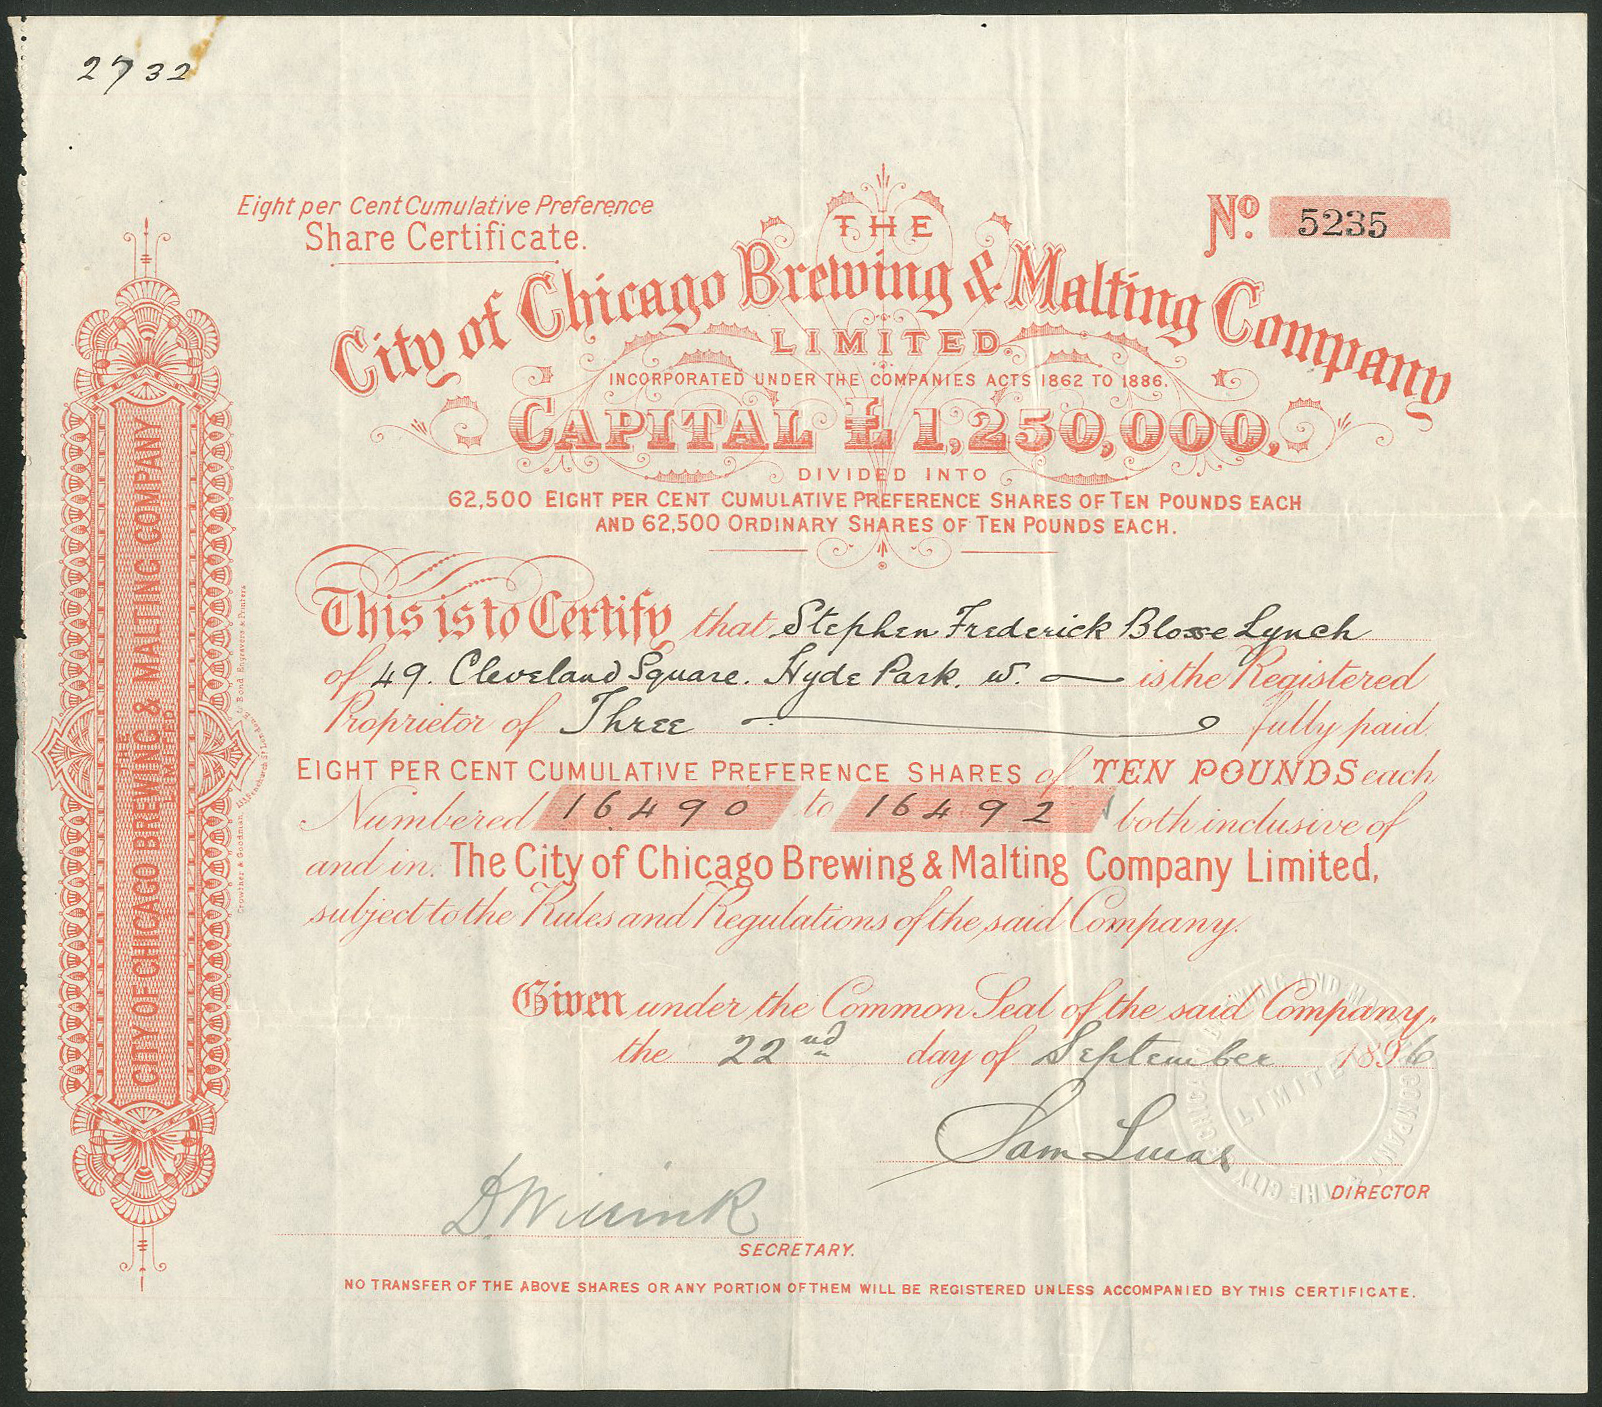 2732
Eight per Cent Cumulative Preference
Share Certificate.
No. 5235
THE
City of Chicago Brewing & Malting Company
LIMITED.
INCORPORATED UNDER THE COMPANIES ACTS 1862 TO 1886.
CAPITAL £1,250,000,
DIVIDED INTO
62,500 EIGHT PER CENT CUMULATIVE PREFERENCE SHARES OF TEN POUNDS EACH
AND 62,500 ORDINARY SHARES OF TEN POUNDS EACH.
This is to Certify that Stephen Frederick Blosse Lynch
of 49. Cleveland Square. Hyde Park. W. is the Registered
Proprietor of Three fully paid
EIGHT PER CENT CUMULATIVE PREFERENCE SHARES of TEN POUNDS each
Numbered 16490 to 16492 both inclusive of
and in The City of Chicago Brewing & Malting Company Limited,
subject to the Rules and Regulations of the said Company.
Given under the Common Seal of the said Company,
the 22nd day of September 1896
Sam Lucas
DIRECTOR
D Willink
SECRETARY.
NO TRANSFER OF THE ABOVE SHARES OR ANY PORTION OF THEM WILL BE REGISTERED UNLESS ACCOMPANIED BY THIS CERTIFICATE.
THE
CITY OF CHICAGO BREWING & MALTING COMPANY
LIMITED
THE CITY OF CHICAGO BREWING AND MALTING COMPANY
LIMITED